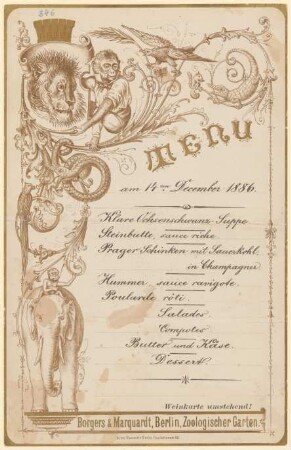 846
MENU
am 14ten December 1886.
Klare Ochsenschwanz-Suppe
Steinbutte, sauce riche
Prager Schinken mit Sauerkohl
in Champagner
Hummer, sauce ravigote
Poularde rôti.
Salades
Compotes
Butter und Käse.
Dessert.
Weinkarte umstehend!
Borgers & Marquardt, Berlin, Zoologischer Garten.